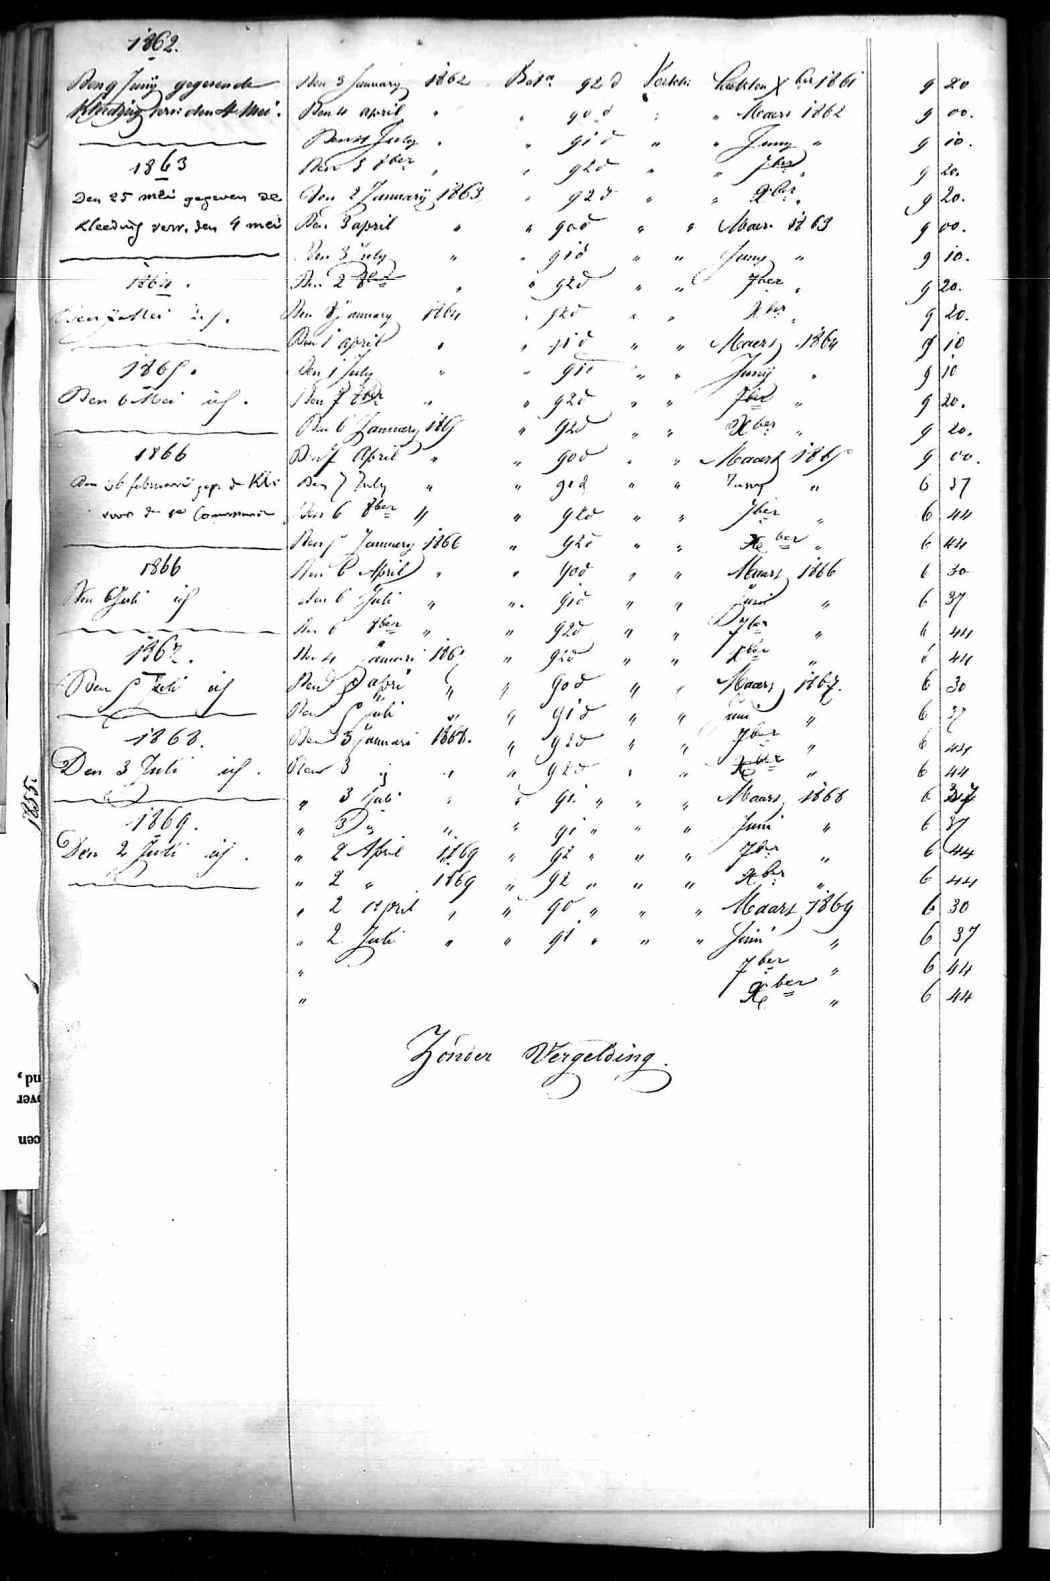 1862.
Den 9 Junij gegeven de
Kleeding verv. den 4 Mei.
1863
Den 25 mei gegeven de
Kleeding verv. den 4 mei
1864.
Den 7 Mei
1865.
Den 6 Mei
1866
voor de Communie
1866
Den 6 Juli
1867.
Den 5 Juli
1868.
Den 3 Juli
1869.
Den 2 Juli
Den 3 January 1862 92 d Xber 1861 9 20
Den 4 april " " 90 d " " Maart 1862 9 00.
Den 4 July " " 91 d " " Juny " 9 10.
Den 3 8ber " " 92 d " " 7ber " 9 20.
Den 2 January 1863 " 92 d " " Xber " 9 20.
Den 3 april " " 90 d " " Maart 1863 9 00.
Den 3 July " " 91 d " " Juny " 9 10.
Den 2 8ber " " 92 d " " 7ber " 9 20.
Den January 1864 " 92 d " " Xber " 9 20.
Den 1 april " " 91 d " " Maart 1864 9 10
Den 1 July " " 91 d " " Junij " 9 10
Den 7 8ber " " 92 d " " 7ber " 9 20.
Den 6 January 1865 " 92 d " " Xber " 9 20.
Den 7 April " " 90 d " " Maart 1865 9 00.
Den 7 July " " 91 d " " Juny " 6 37
Den 6 8ber " " 92 d " " 7ber " 6 44
Den 5 January 1866 " 92 d " " Xber " 6 44
Den 6 April " " 90 d " " Maart 1866 6 30
Den 6 Juli " " 91 d " " Juni " 6 37
Den 6 8ber " " 92 d " " 7ber " 6 44
Den 4 Januari 1867 " 92 d " " Xber " 6 44
Den 5 april " " 90 d " " Maart 1867. 6 30
Den 5 Juli " " 91 d " " Juni " 6 37
Den 3 Januari 1868. " 92 d " " 7ber " 6 44
Den 3 " " " 92 d " " Xber " 6 44
" 3 Juli " " 91 " " " Maart 1868 6 37
" 3 " " " 91 " " " Juni " 6 37
" 2 April 1869 " 92 " " " 7ber " 6 44
" 2 " 1869 " 92 " " " Xber " 6 44
" 2 april " " 90 " " " Maart 1869 6 30
" 2 Juli " " 91 " " " Juni " 6 37
" 7ber " 6 44
" Xber " 6 44
Zonder Vergelding.
1855.